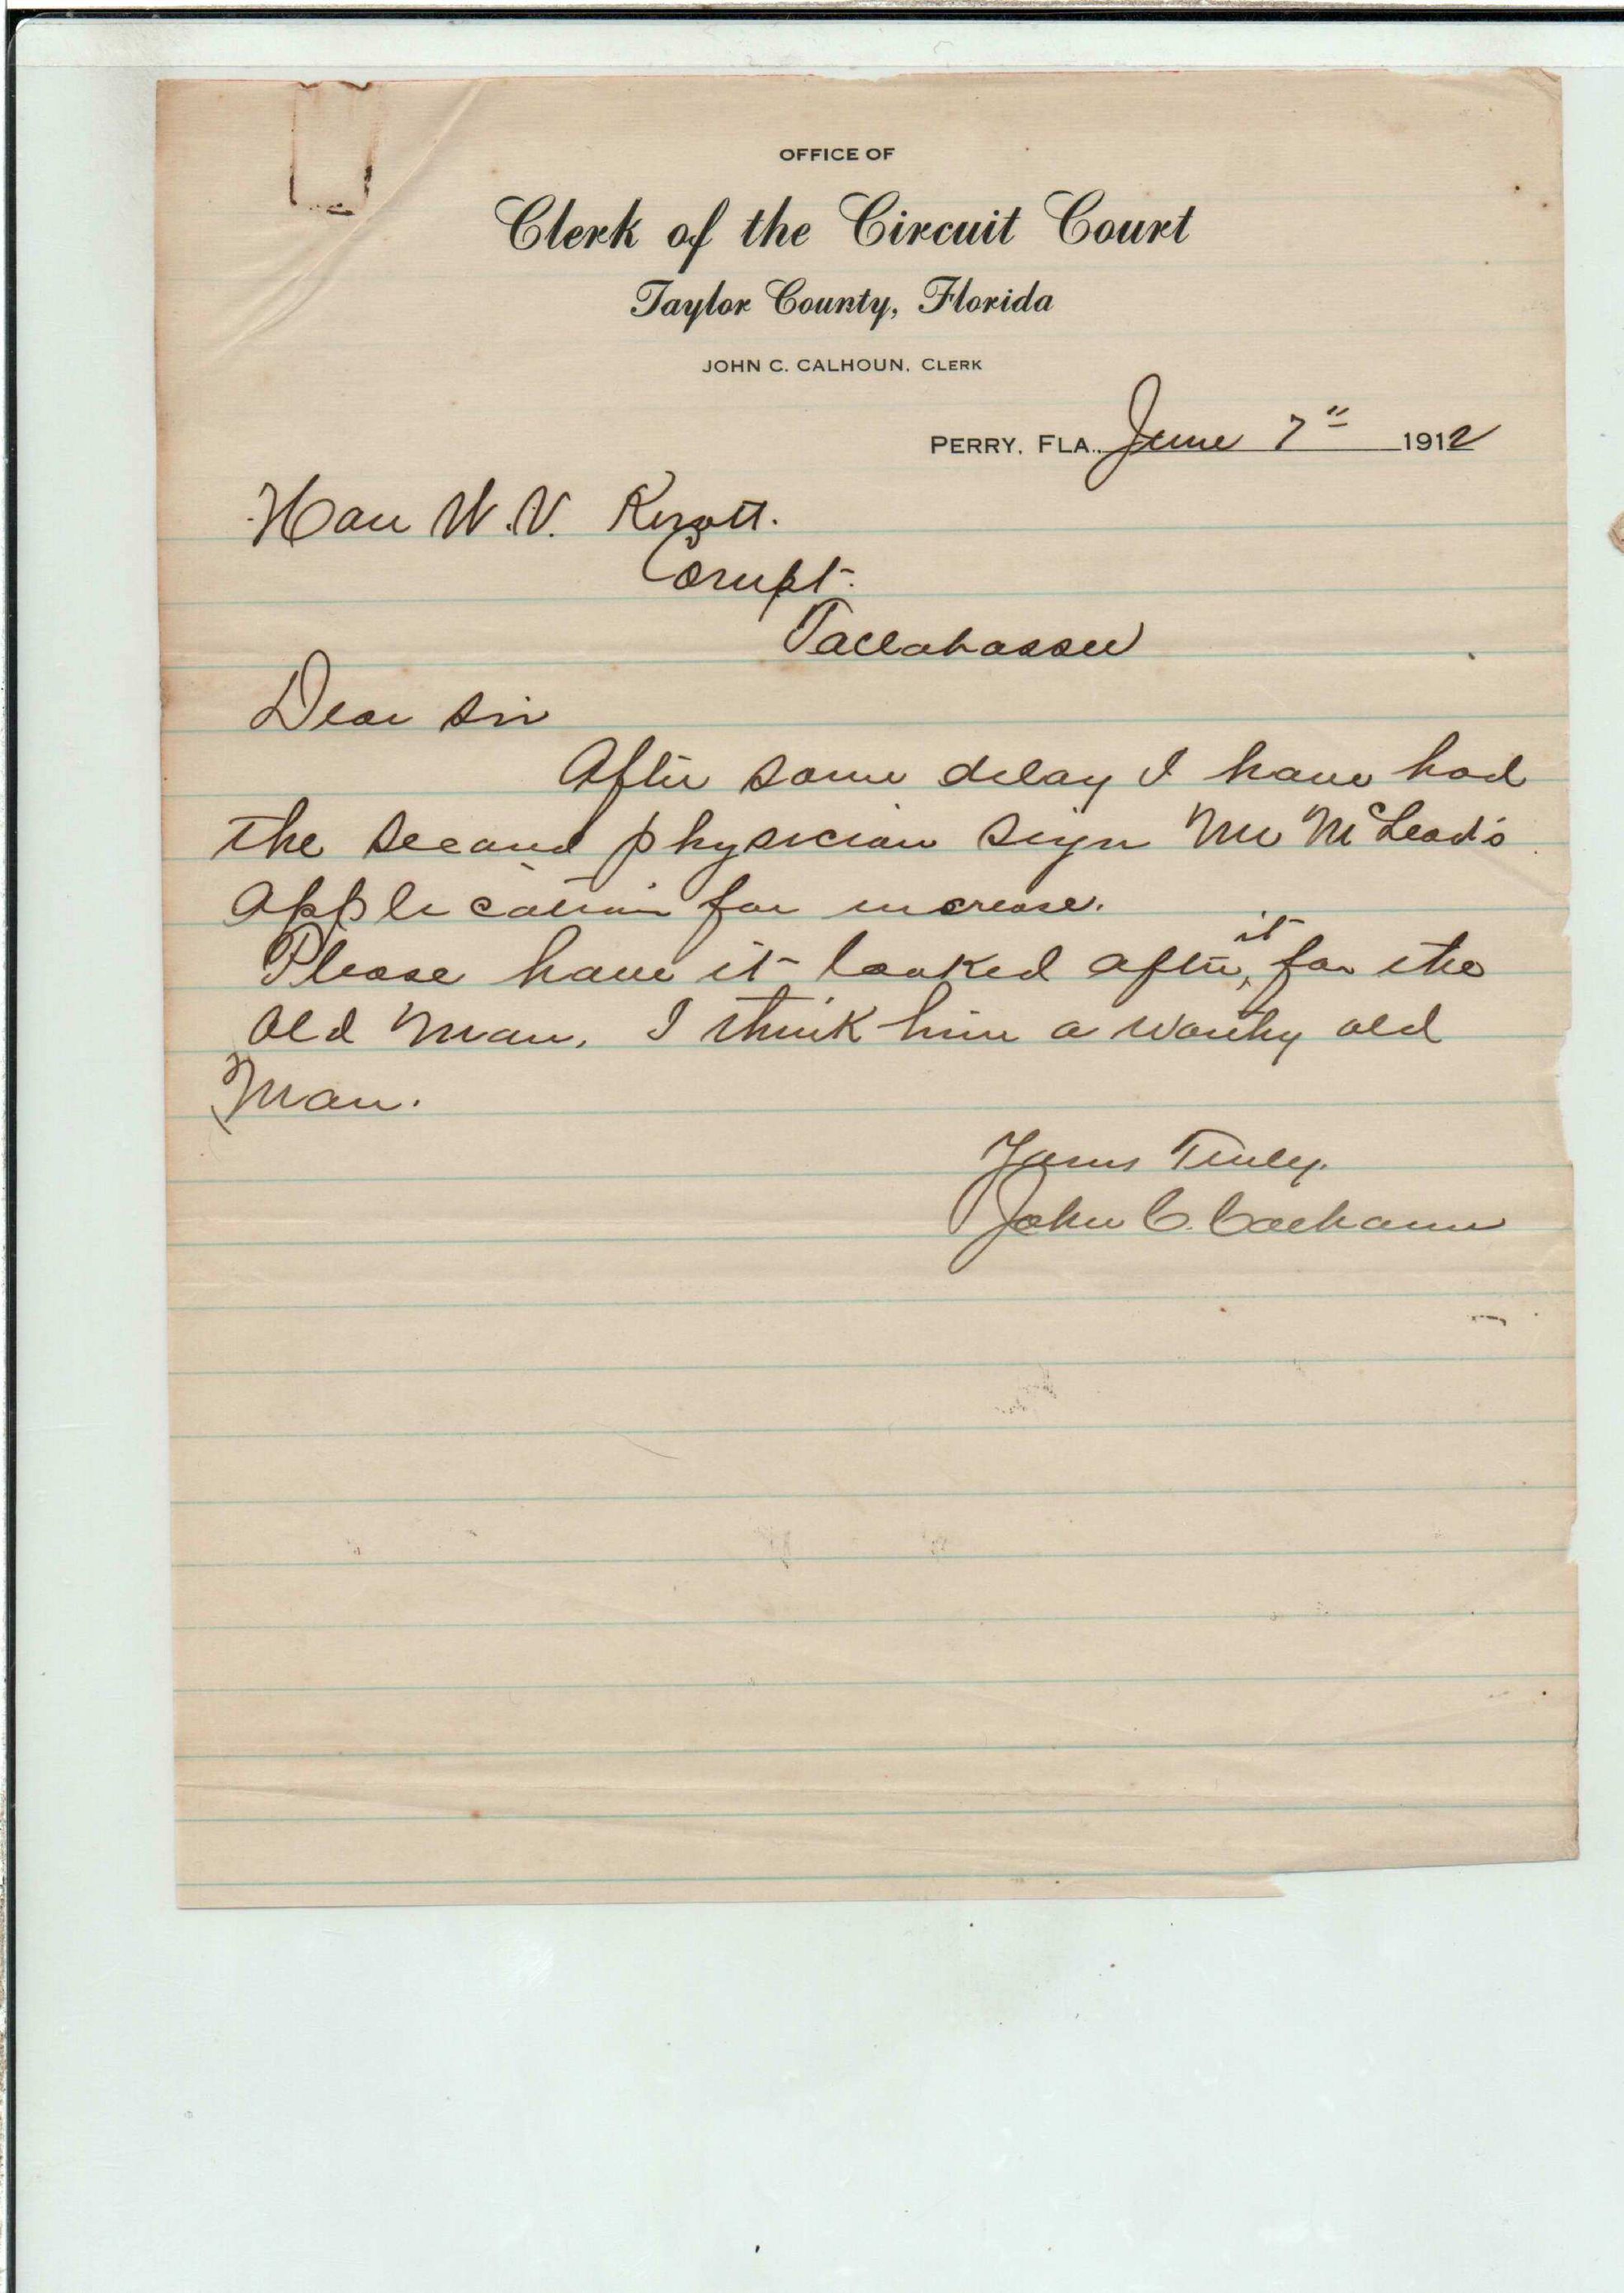 OFFICE OF
Clerk of the Circuit Court
Taylor County, Florida
JOHN C. CALHOUN, CLERK
PERRY, FLA., June 7" 1912
Hon W. V. Knott.
Compt.
Tallahassee
Dear Sir
After some delay I have had
the second physician sign Mr McLeod's
application for increase.
Please have it looked after, it for the
old man. I think him a worthy old
Man.
Yours Truly.
John C. Calhoun